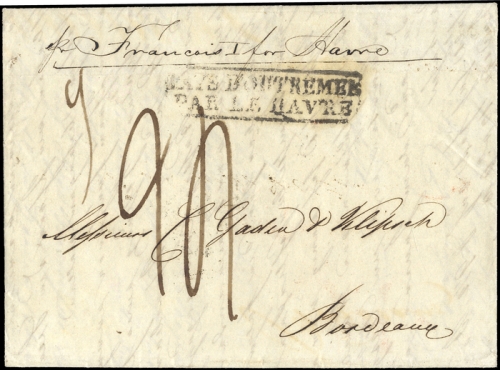 pr Francois I for Havre
PAYS D'OUTREMER
PAR LE HAVRE
Messieurs C. Gaden & Klipsch
Bordeaux